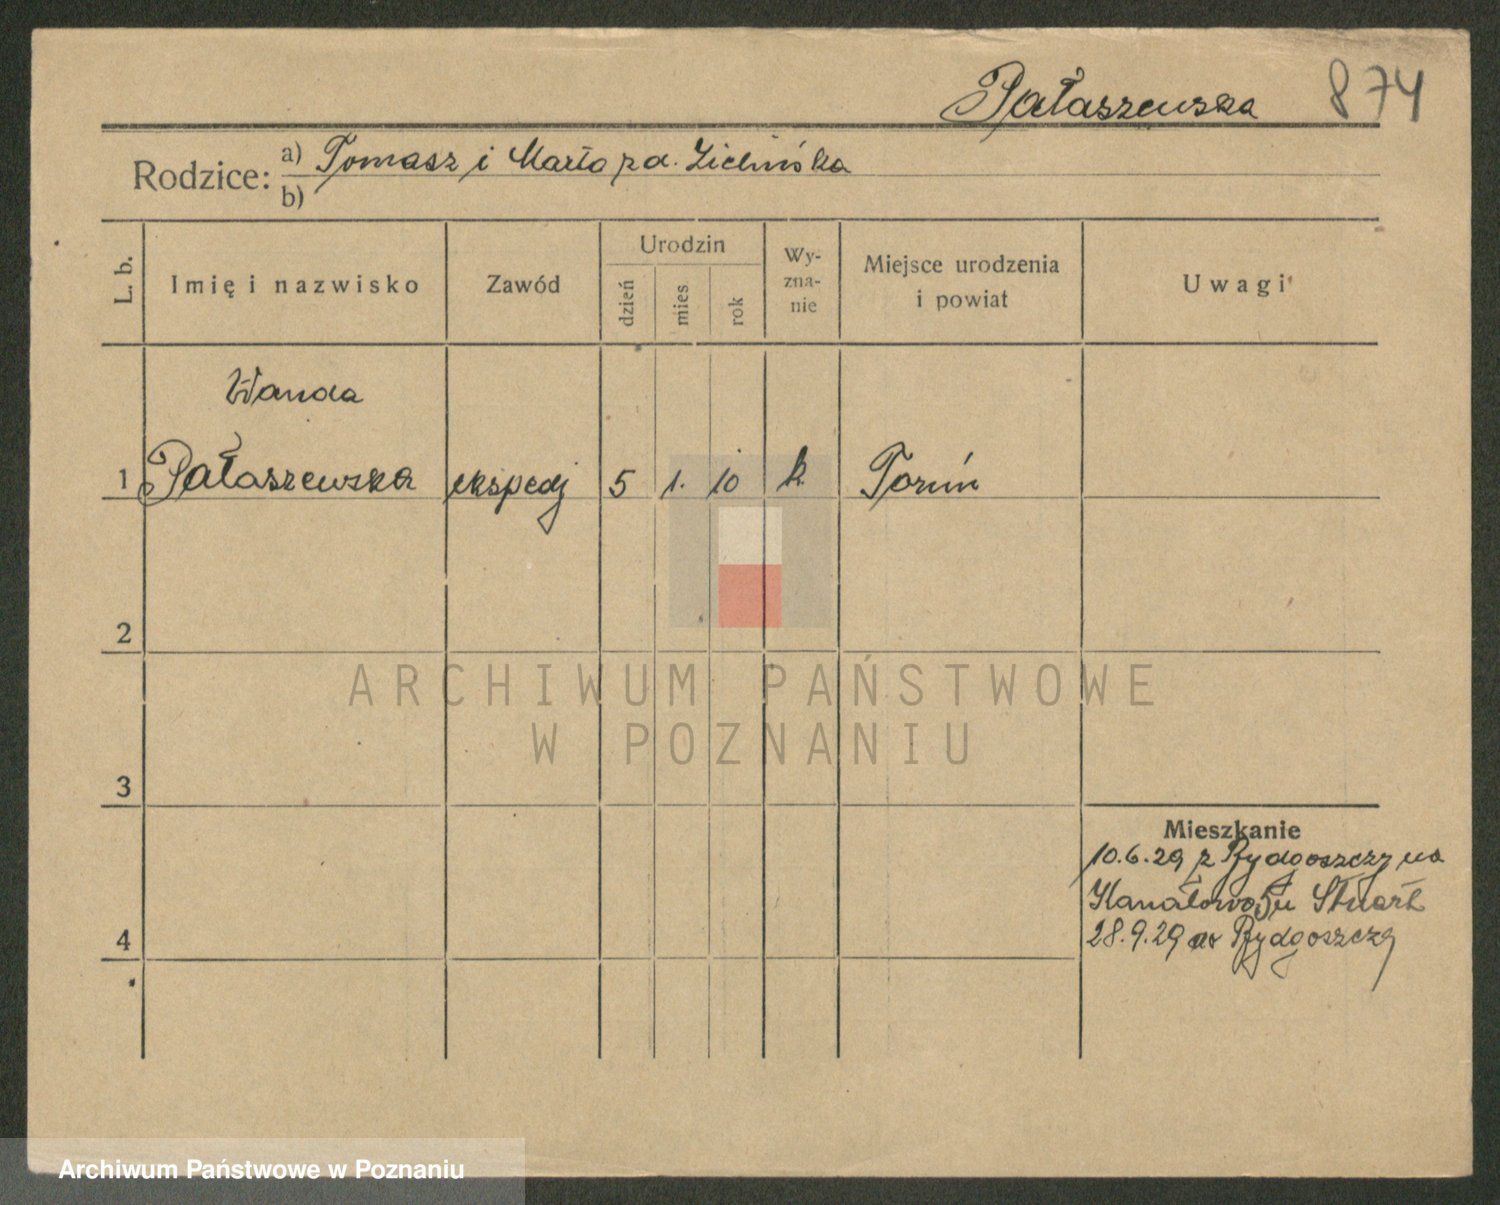 Pałaszewska 874
Rodzice: a) Tomasz i Marta z d. Zielińska
b)
L. b. Imię i nazwisko Zawód Urodzin dzień mies. rok Wy-zna-nie Miejsce urodzenia i powiat Uwagi
Wanda
1 Pałaszewska ekspedj 5 1. 10 k. Toruń
2
ARCHIWUM PAŃSTWOWE
W POZNANIU
3
Mieszkanie
10.6.29 z Bydgoszczy na
Kanałową 5 u
28.9.29 do Bydgoszczy
4
Archiwum Państwowe w Poznaniu